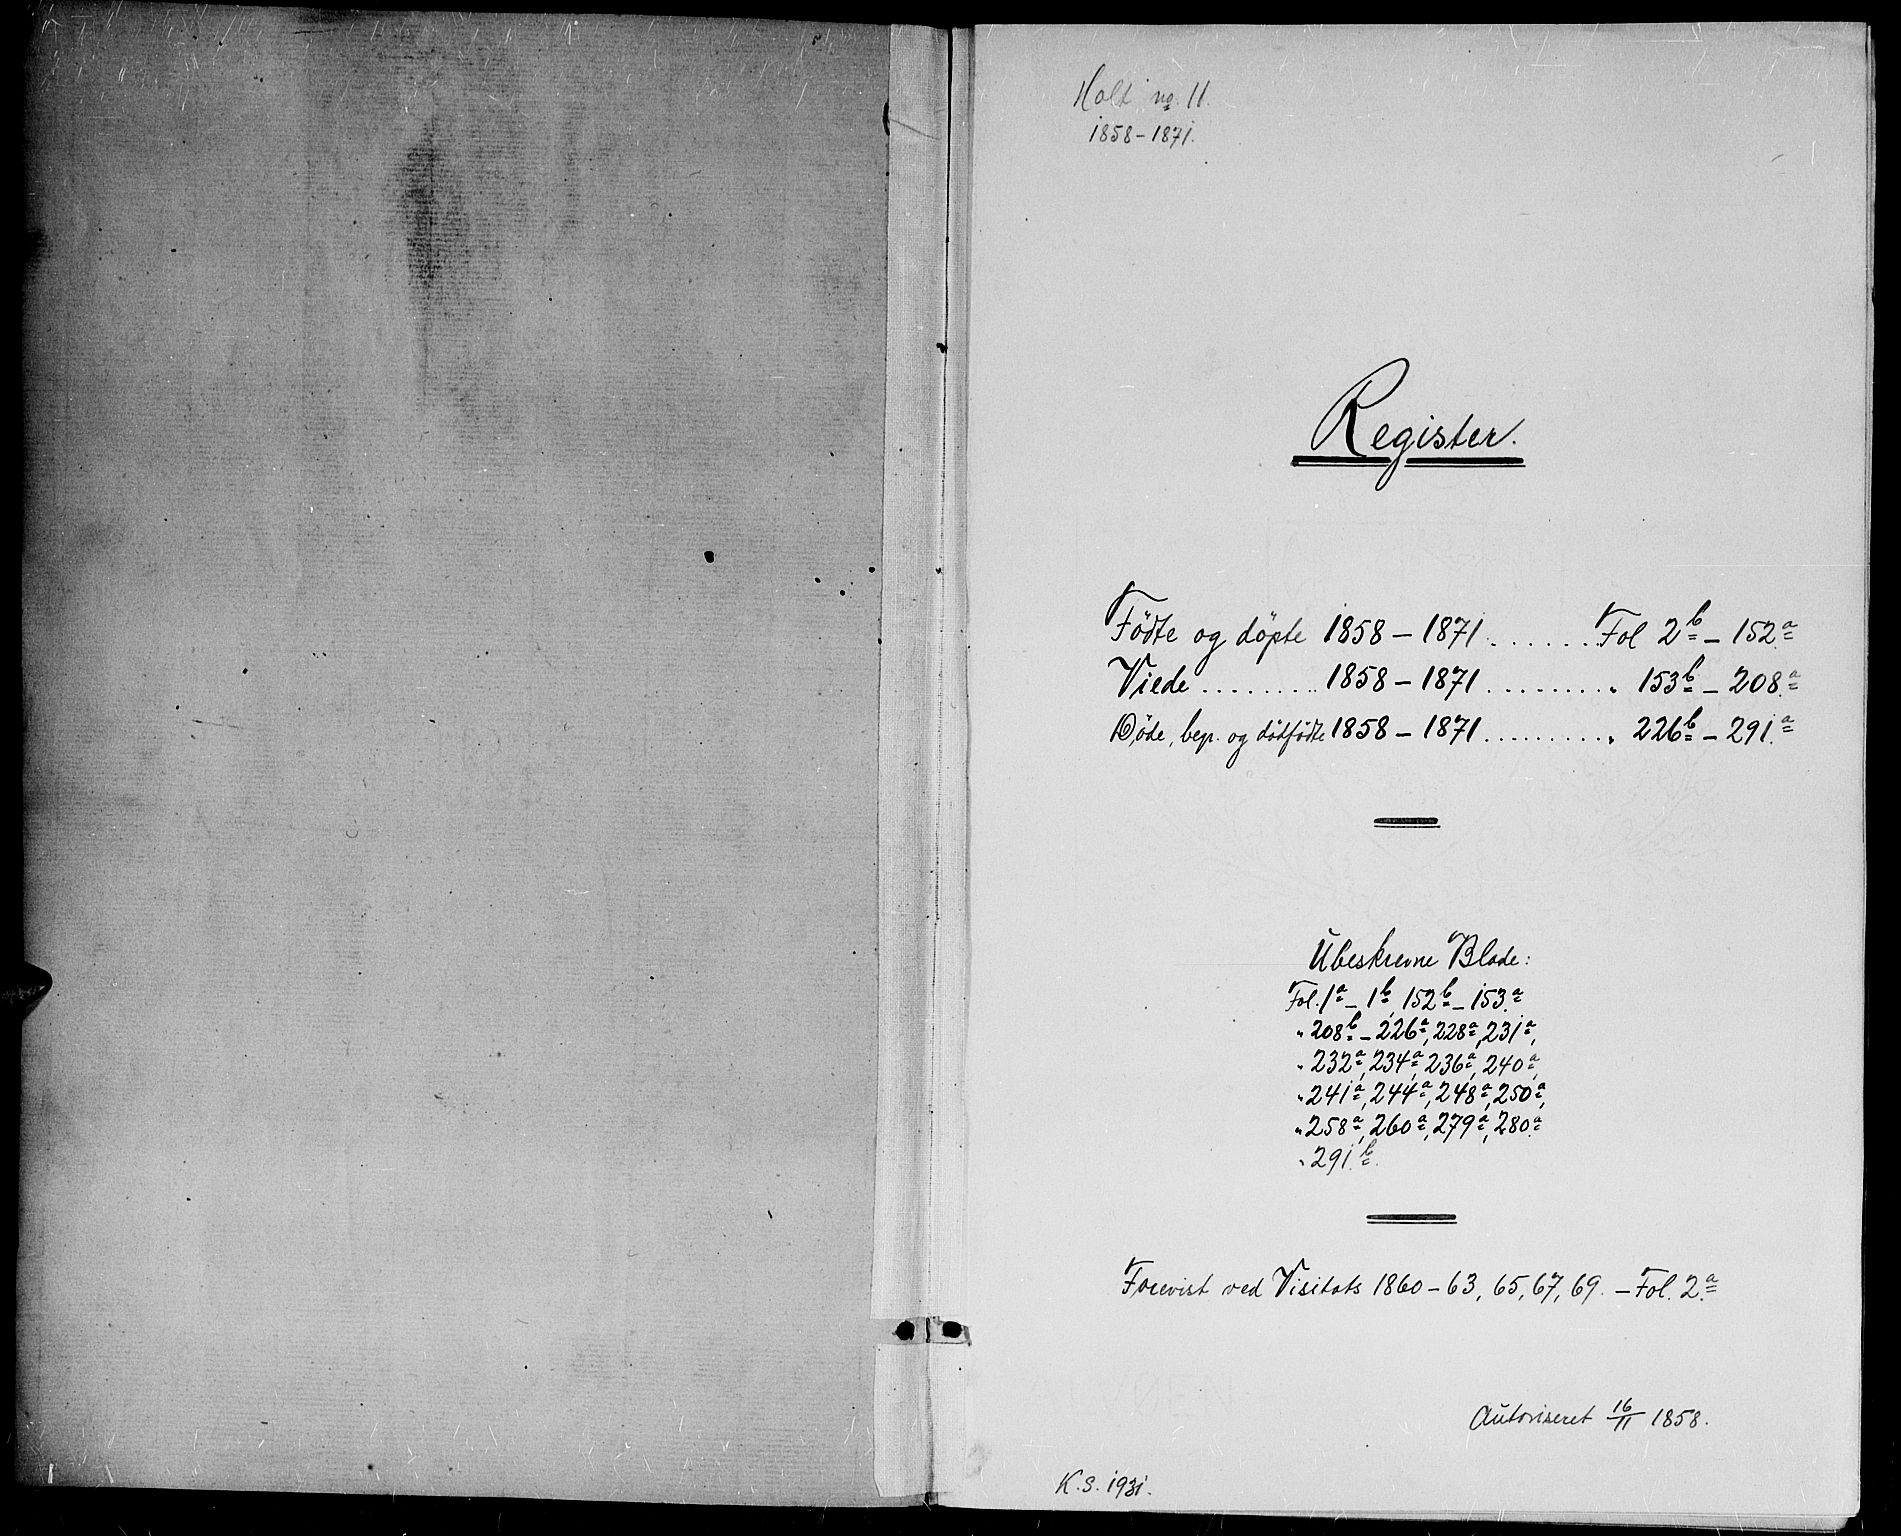 Holt no. 11.
1858-1871.
Register.
Födte og döpte 1858 - 1871 ....... Fol 2b - 152a
Viede ......... 1858 - 1871 .......... " 153b - 208a
Döde, begr. og dödfödte 1858 - 1871 .......... " 226b - 291a
Ubeskrevne Blade:
Fol. 1a - 1b, 152b - 153a
" 208b - 226a, 228a, 231a,
" 232a, 234a, 236a, 240a,
" 241a, 244a, 248a, 250a,
" 258a, 260a, 279a, 280a
" 291b.
Forevist ved Visitats 1860 - 63, 65, 67, 69. - Fol. 2a
Autoriseret 16/11 1858.
K.S. 1931.